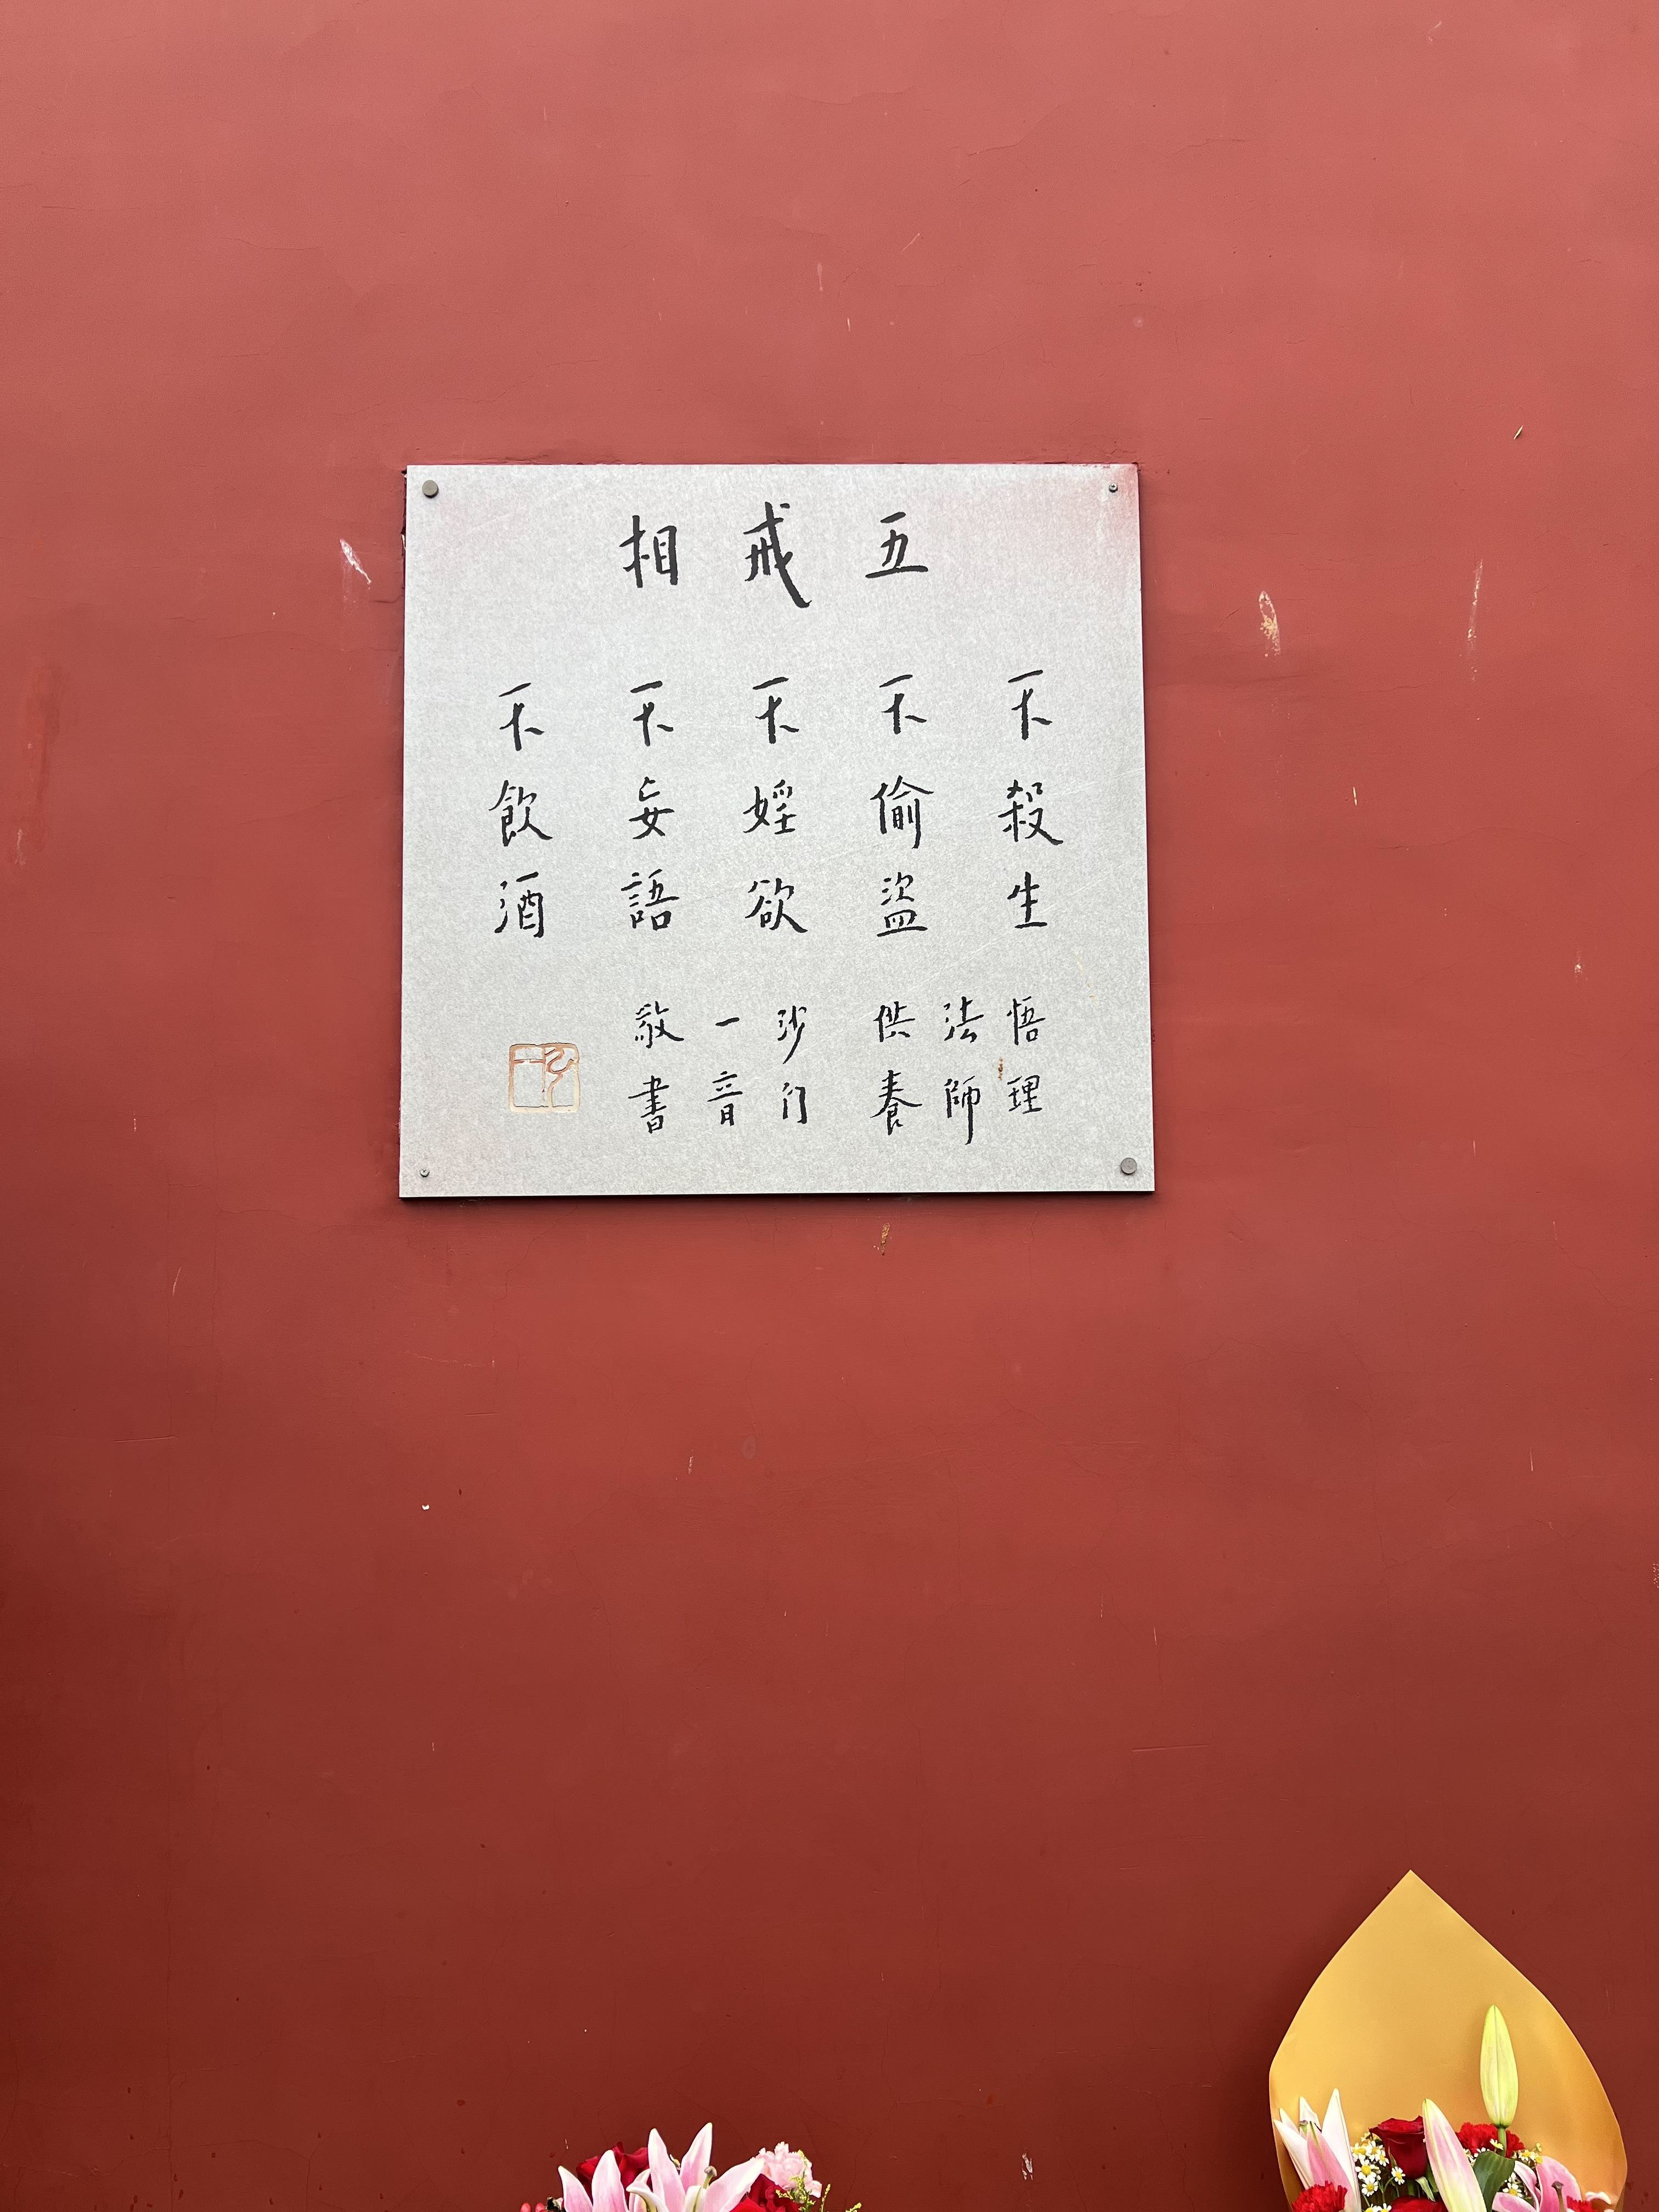 五戒相
不殺生
不偷盜
不婬欲
不妄語
不飲酒
悟理
法師
供養
沙门
一音
敬書